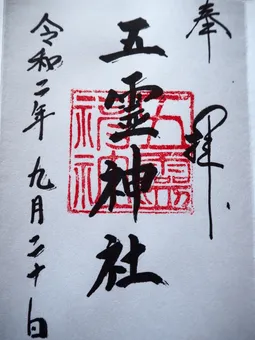 奉拝
五霊神社
五霊神社
令和二年九月二十日